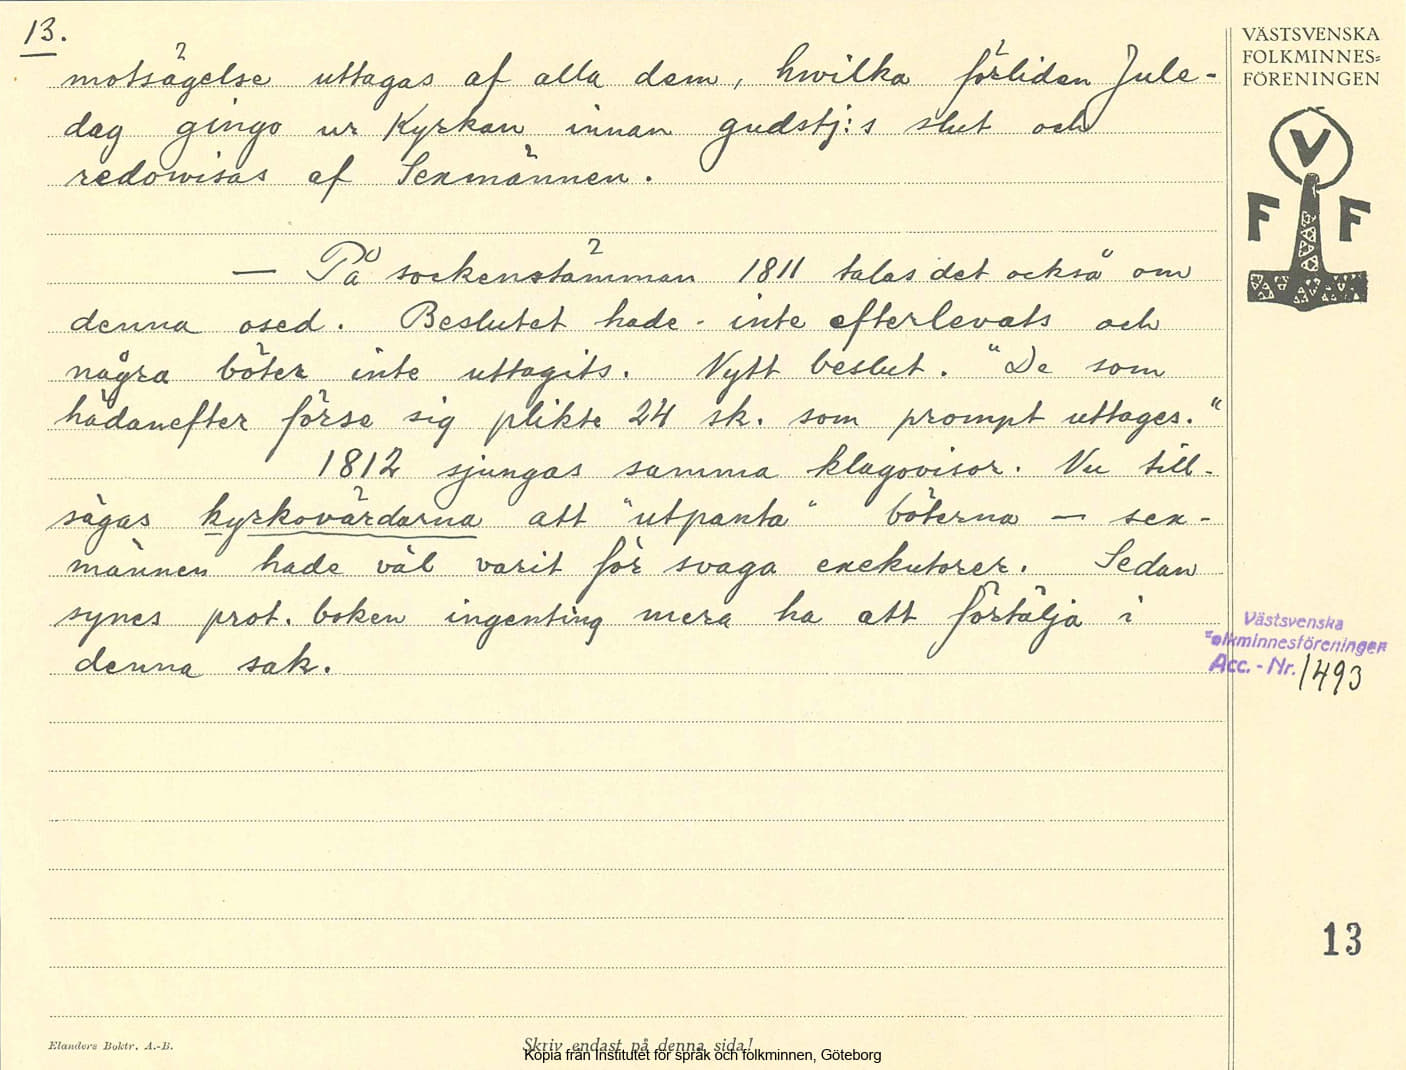 13.
motsägelse uttagas af alla dem, hwilka förliden Jule-
dag gingo ur Kyrkan innan gudstj:s slut och
redowisas af Sexmännen.
— På sockenstämman 1811 talas det också om
denna osed. Beslutet hade inte efterlevats och
några böter inte uttagits. Nytt beslut. "De som
hädanefter förse sig plikte 24 sk. som prompt uttages."
1812 sjungas samma klagovisor. Nu till-
sägas kyrkovärdarna att "utpanta" böterna — sex-
männen hade väl varit för svaga exekutorer. Sedan
synes prot. boken ingenting mera ha att förtälja i
denna sak.
VÄSTSVENSKA
FOLKMINNES=
FÖRENINGEN
V
F F
Västsvenska
Folkminnesföreningen
Acc. - Nr. 1493
13
Elanders Boktr. A.-B.
Skriv endast på denna sida!
Kopia från Institutet för språk och folkminnen, Göteborg